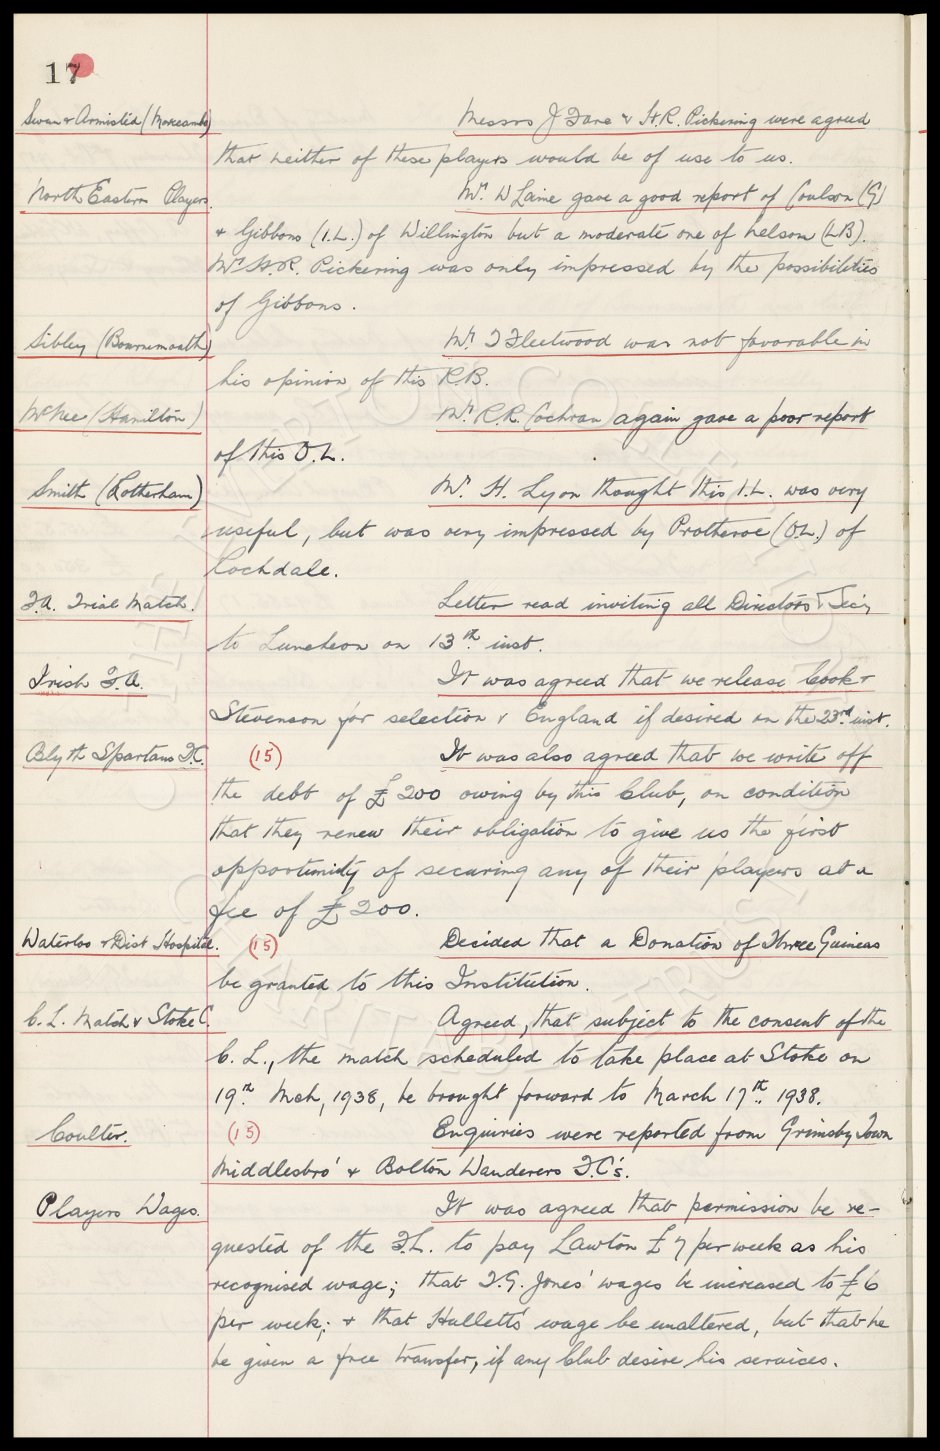 17
Swan & Armisted (Morecambe) Messrs J Fare & H.R. Pickering were agreed
that neither of these players would be of use to us.
North Eastern Players. Mr. W Laine gave a good report of Coulson (G)
& Gibbons (I.L.) of Willington but a moderate one of Nelson (LB).
Mr. H.R. Pickering was only impressed by the possibilities
of Gibbons.
Sibley (Bournemouth) Mr. T Fleetwood was not favorable in
his opinion of this R.B.
McNee (Hamilton) Mr. R.R. Cochran again gave a poor report
of this O.L.
Smith (Rotherham) Mr. H. Lyon thought this I.L. was very
useful, but was very impressed by Protheroe (O.L.) of
Rochdale.
F.A. Trial Match. Letter read inviting all Directors & Sec'y
to Luncheon on 13th inst.
Irish F.A. It was agreed that we release Cook &
Stevenson for selection v England if desired on the 23rd inst.
Blyth Spartans F.C. (15) It was also agreed that we write off
the debt of £200 owing by this Club, on condition
that they renew their obligation to give us the first
opportunity of securing any of their players at a
fee of £200.
Waterloo & Dist Hospital. (15) Decided that a Donation of Three Guineas
be granted to this Institution.
C.L. Match v Stoke C. Agreed, that subject to the consent of the
C.L., the match scheduled to take place at Stoke on
19th Mch, 1938, be brought forward to March 17th 1938.
Coulter. (15) Enquiries were reported from Grimsby Town
Middlesbro' & Bolton Wanderers F.C's.
Players Wages. It was agreed that permission be re-
quested of the F.L. to pay Lawton £7 per week as his
recognised wage; that T.G. Jones' wages be increased to £6
per week; & that Hullett's wage be unaltered, but that he
be given a free transfer, if any Club desire his services.
THE EVERTON COLLECTION
CHARITABLE TRUST